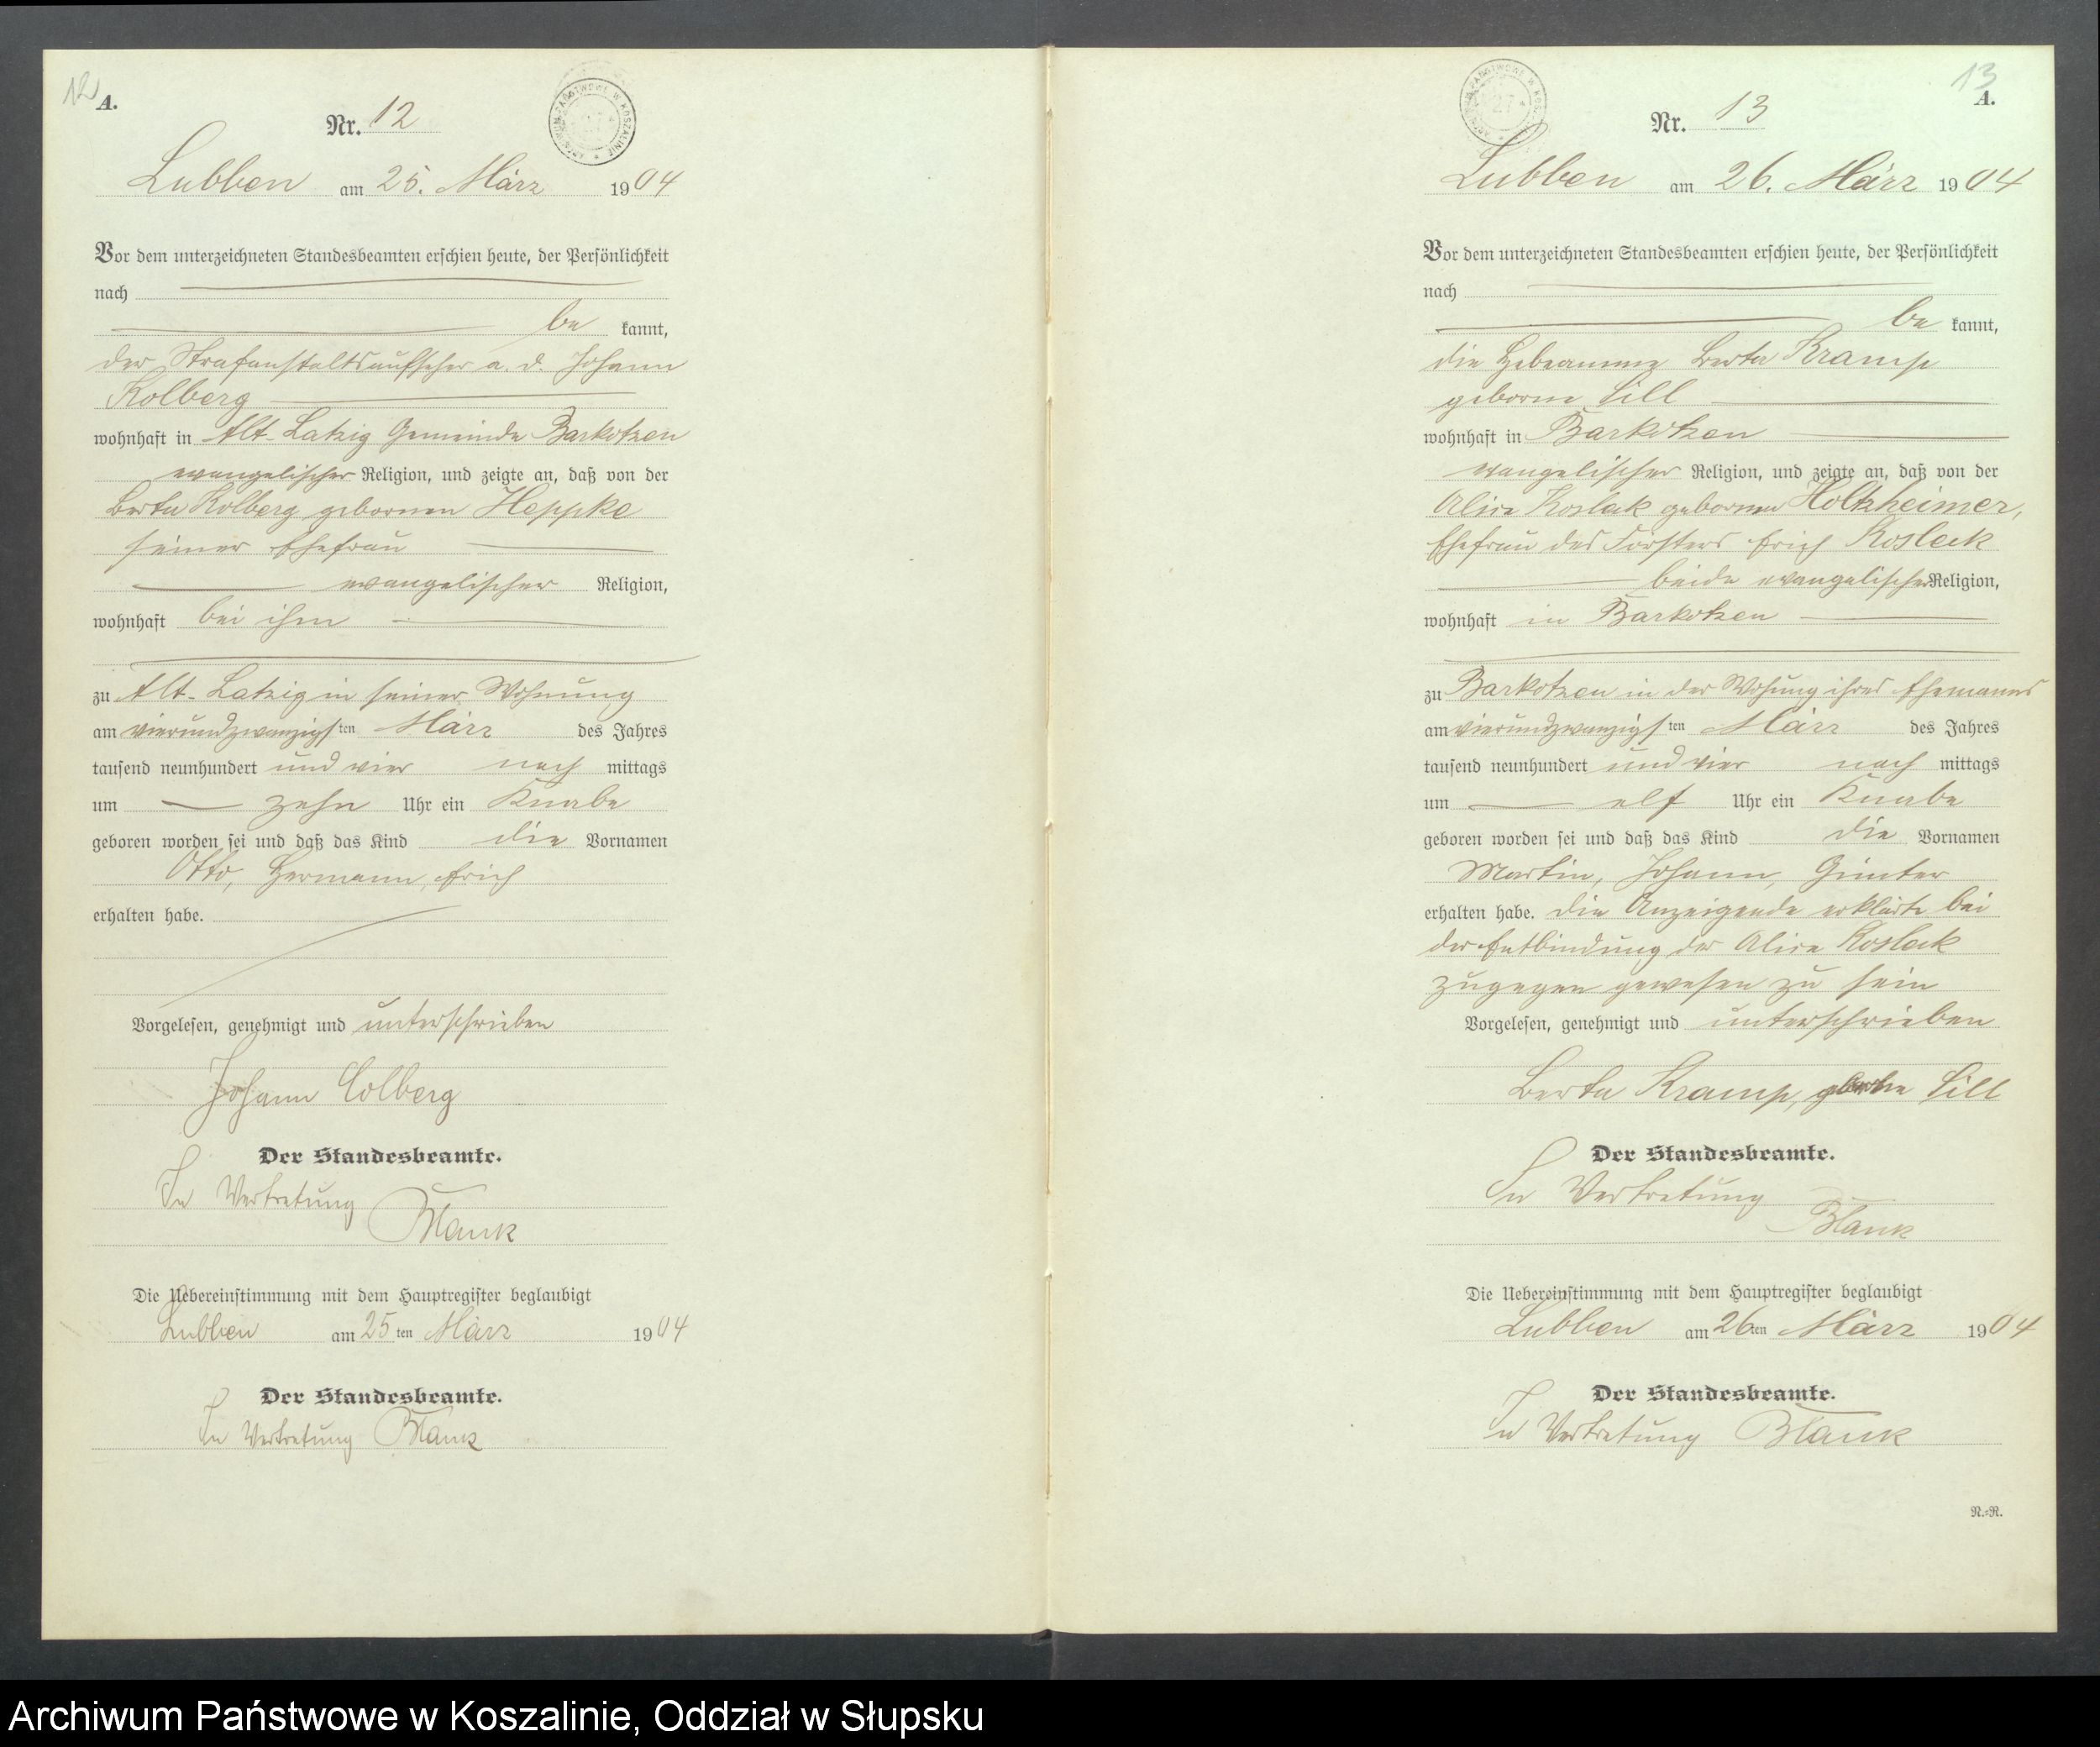 12
A.
Nr. 12
Lubben am 25. März 1904
Vor dem unterzeichneten Standesbeamten erschien heute, der Persönlichkeit
nach
be kannt,
der Strafanstaltsaufseher a. d. Johann
Kolberg
wohnhaft in Alt-Latzig Gemeinde Barkotzen
evangelischer Religion, und zeigte an, daß von der
Berta Kolberg gebornen Heppke
seiner Ehefrau
evangelischer Religion,
wohnhaft bei ihm
zu Alt-Latzig in seiner Wohnung
am vierundzwanzigsten März des Jahres
tausend neunhundert und vier nach mittags
um zehn Uhr ein Knabe
geboren worden sei und daß das Kind die Vornamen
Otto, Hermann, Erich
erhalten habe.
Vorgelesen, genehmigt und unterschrieben
Johann Colberg
Der Standesbeamte.
In Vertretung
Blank
Die Uebereinstimmung mit dem Hauptregister beglaubigt
Lubben am 25 ten März 1904
Der Standesbeamte.
In Vertretung Blank
13
A.
Nr. 13
Lubben am 26. März 1904
Vor dem unterzeichneten Standesbeamten erschien heute, der Persönlichkeit
nach
be kannt,
die Hebeamme Berta Kramp
geborne Sill
wohnhaft in Barkotzen
evangelischer Religion, und zeigte an, daß von der
Alice Koslek gebornen Holtzheimer,
Ehefrau des Försters Erich Kosleck
beide evangelischer Religion,
wohnhaft in Barkotzen
zu Barkotzen in der Wohung ihres Ehemanns
am vierundzwanzigsten März des Jahres
tausend neunhundert und vier nach mittags
um elf Uhr ein Knabe
geboren worden sei und daß das Kind die Vornamen
Martin, Johann, Günter
erhalten habe. Die Anzeigende erklärte bei
der Entbindung der Alice Kosleck
zugegen gewesen zu sein
Vorgelesen, genehmigt und unterschrieben
Berta Kramp, geborne Sill
Der Standesbeamte.
In Vertretung
Blank
Die Uebereinstimmung mit dem Hauptregister beglaubigt
Lubben am 26 ten März 1904
Der Standesbeamte.
In Vertretung Blank
R.=R.
Archiwum Państwowe w Koszalinie, Oddział w Słupsku